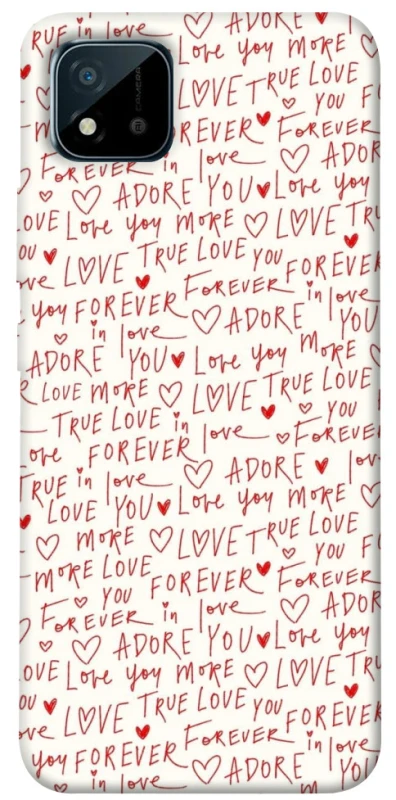 ADORE
RUE in love Love you MORE TRUE LOVE
LOVE TRUE LOVE
YOU
MORE FOREVER FOREVER
FOREVER in love ADOR
ADORE YOU Love you
OVE Love you MORE LOVE TRU
OU TRUE LOVE YOU
ove LOVE FOREVER
FOREVER in love
you FOREVER ADORE YOU
in love
ADORE YOU Love you MORE
LOVE MORE LOVE TRUE LOVE
TRUE LOVE in love YOU
FOREVER FOREVE
ove ADORE
TRUE in love
LOVE YOU Love you MORE
MORE LOVE TRUE LOVE
MORE LOVE YOU
YOU FOREVER FOREVER
FOREVER in love ADOR
ADORE YOU Love you
OVE Love you MORE LOVE TRU
OU TRUE LOVE YOU
ove LOVE FOREVER
FOREVER in love
you FOREVER ADORE YOU
in love